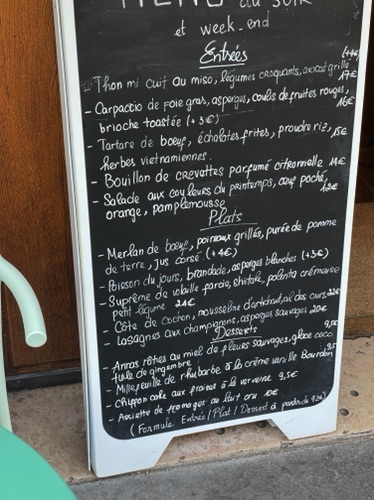 MENU du soir
et week-end
Entrées
(+4€)
- Thon mi cuit au miso, légumes croquants, avocat grillé 17€
- Carpaccio de foie gras, asperges, coulis de fruites rouges,
brioche toastée (+3€) 16€
- Tartare de bœuf, échalotes frites, proudre riz, 15€
herbes vietnamiennes.
- Bouillon de crevettes parfumé citronnelle 14€
- Salade aux couleurs du printemps, œuf poché,
orange, pamplemousse
Plats
- Merlan de bœuf, poireaux grillés, purée de pomme
de terre, jus corsé (+4€)
- Poisson du jours, brandade, asperges blanches (+3€)
- Suprême de volaille farcie, shitaké, polenta crémeuse
petit légume 24€
- Côte de cochon, mousseline d'artichaut, ail des ours 22€
- Lasagnes aux champignons, asperges sauvages 20€
Desserts
- Annas rôties au miel de fleurs sauvages, glace coco
tuile de gingembre
Millefeuille de rhubarbe à la crème vanille Bourbon
- Chiffon cake aux fraises à la verveine 9,5€
- Assiette de fromages au lait cru 10€
(Formule Entrée / Plat / Dessert à partir de